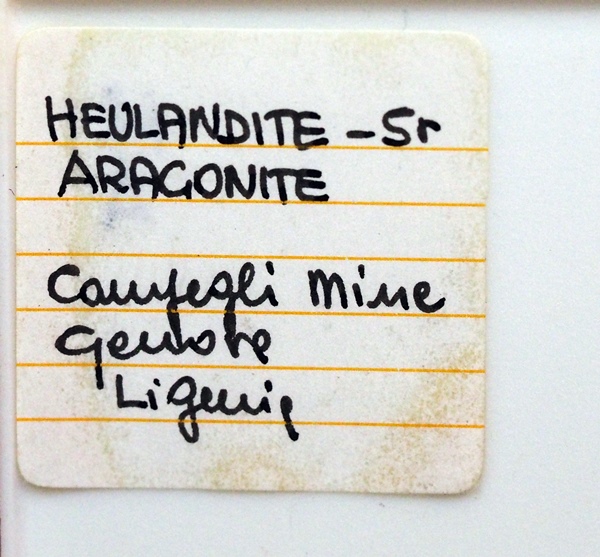 HEULANDITE - Sr
ARAGONITE
Campegli Mine
Genova
Liguria